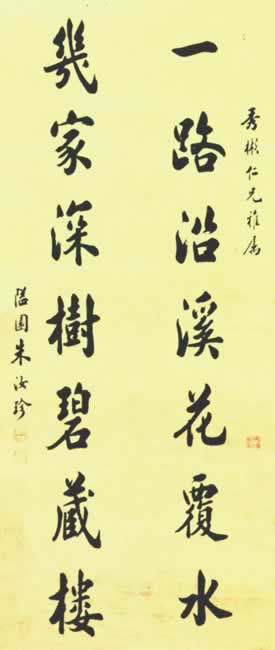 秀彬仁兄雅屬
一路沿溪花覆水
幾家深樹碧藏樓
隘園朱汝珍